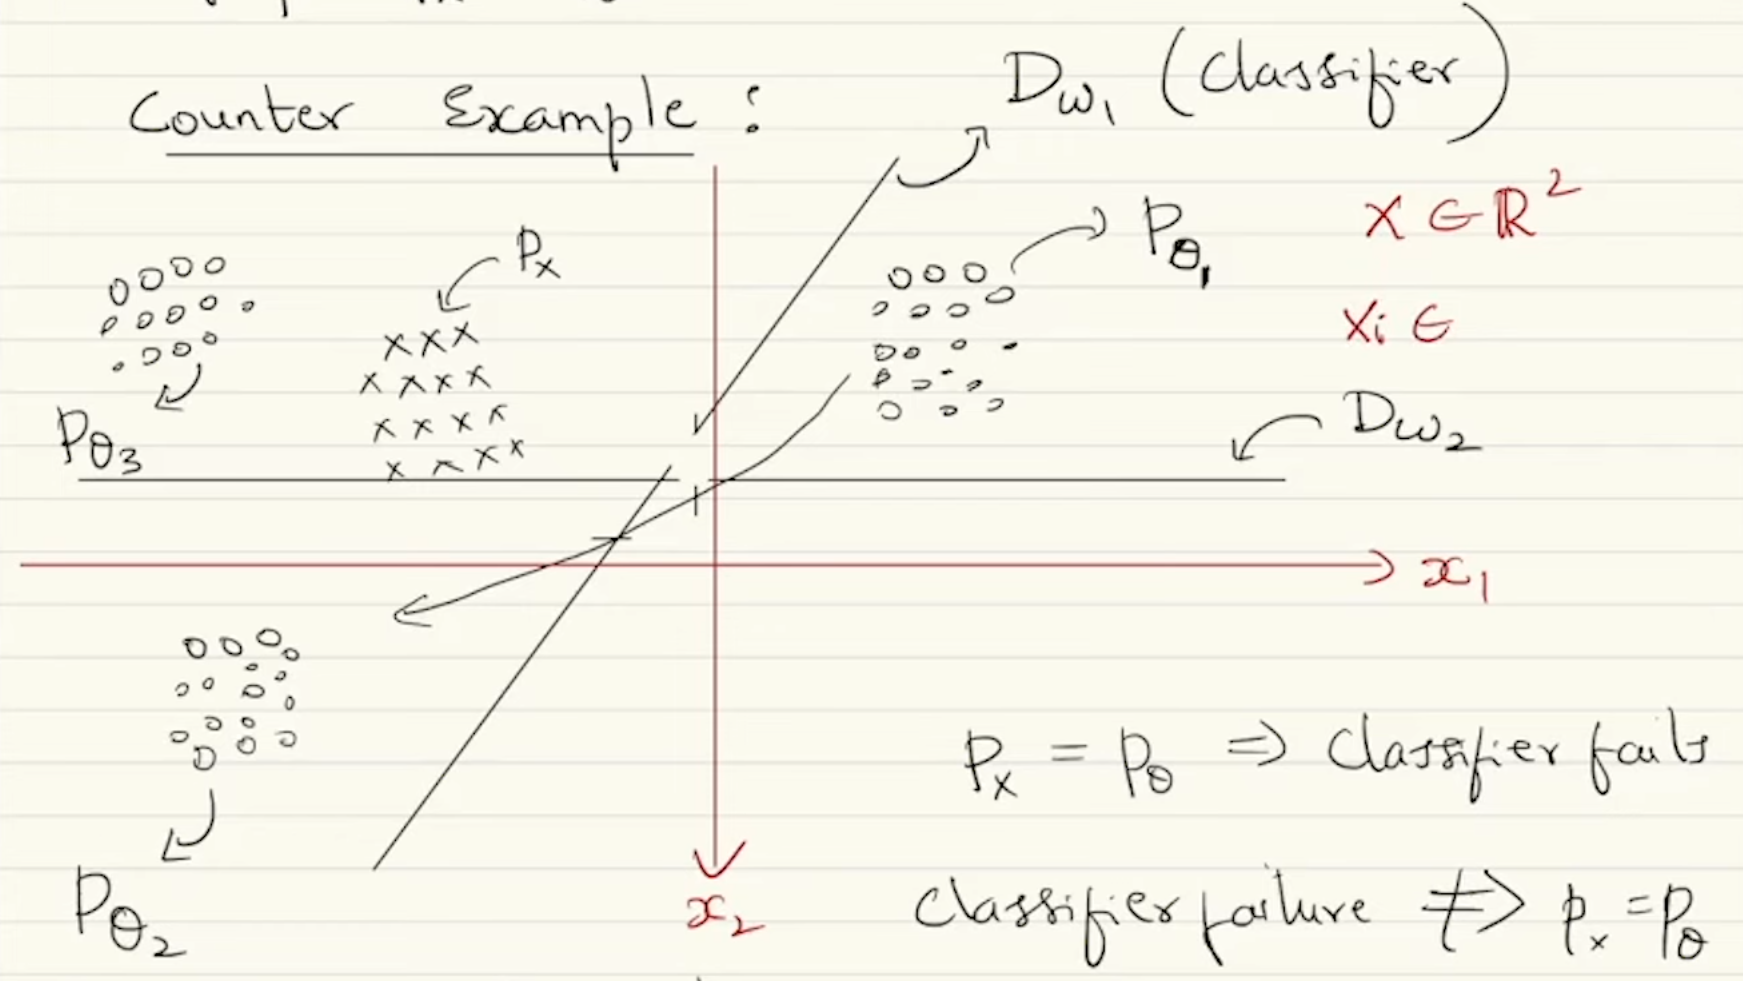 Counter Example :
Dω₁ (Classifier)
Pₓ
Pθ₁
X ∈ ℝ²
Xi ∈
Pθ₃
Dω₂
x₁
Pₓ = Pθ ⇒ Classifier fails
Pθ₂
x₂
Classifier failure ≠> Pₓ = Pθ